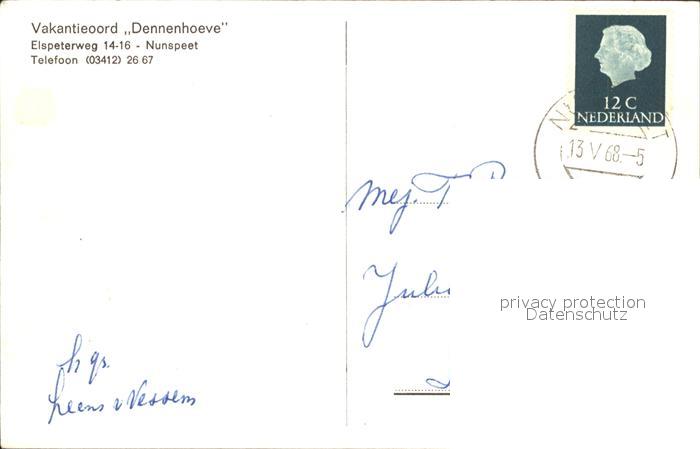 Vakantieoord „Dennenhoeve"
Elspeterweg 14-16 - Nunspeet
Telefoon (03412) 26 67
12 C
NEDERLAND
13 V 68.-5
Mej. T
privacy protection
Datenschutz
h gr.
v Vessem